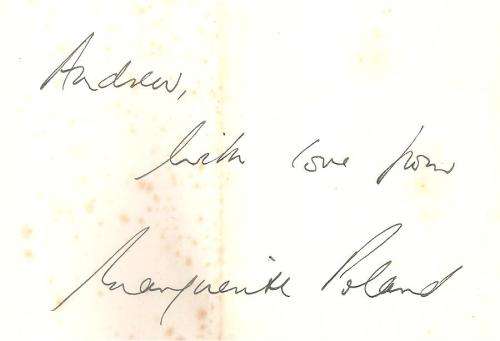 Andrew,
with love from
Marguerite Poland